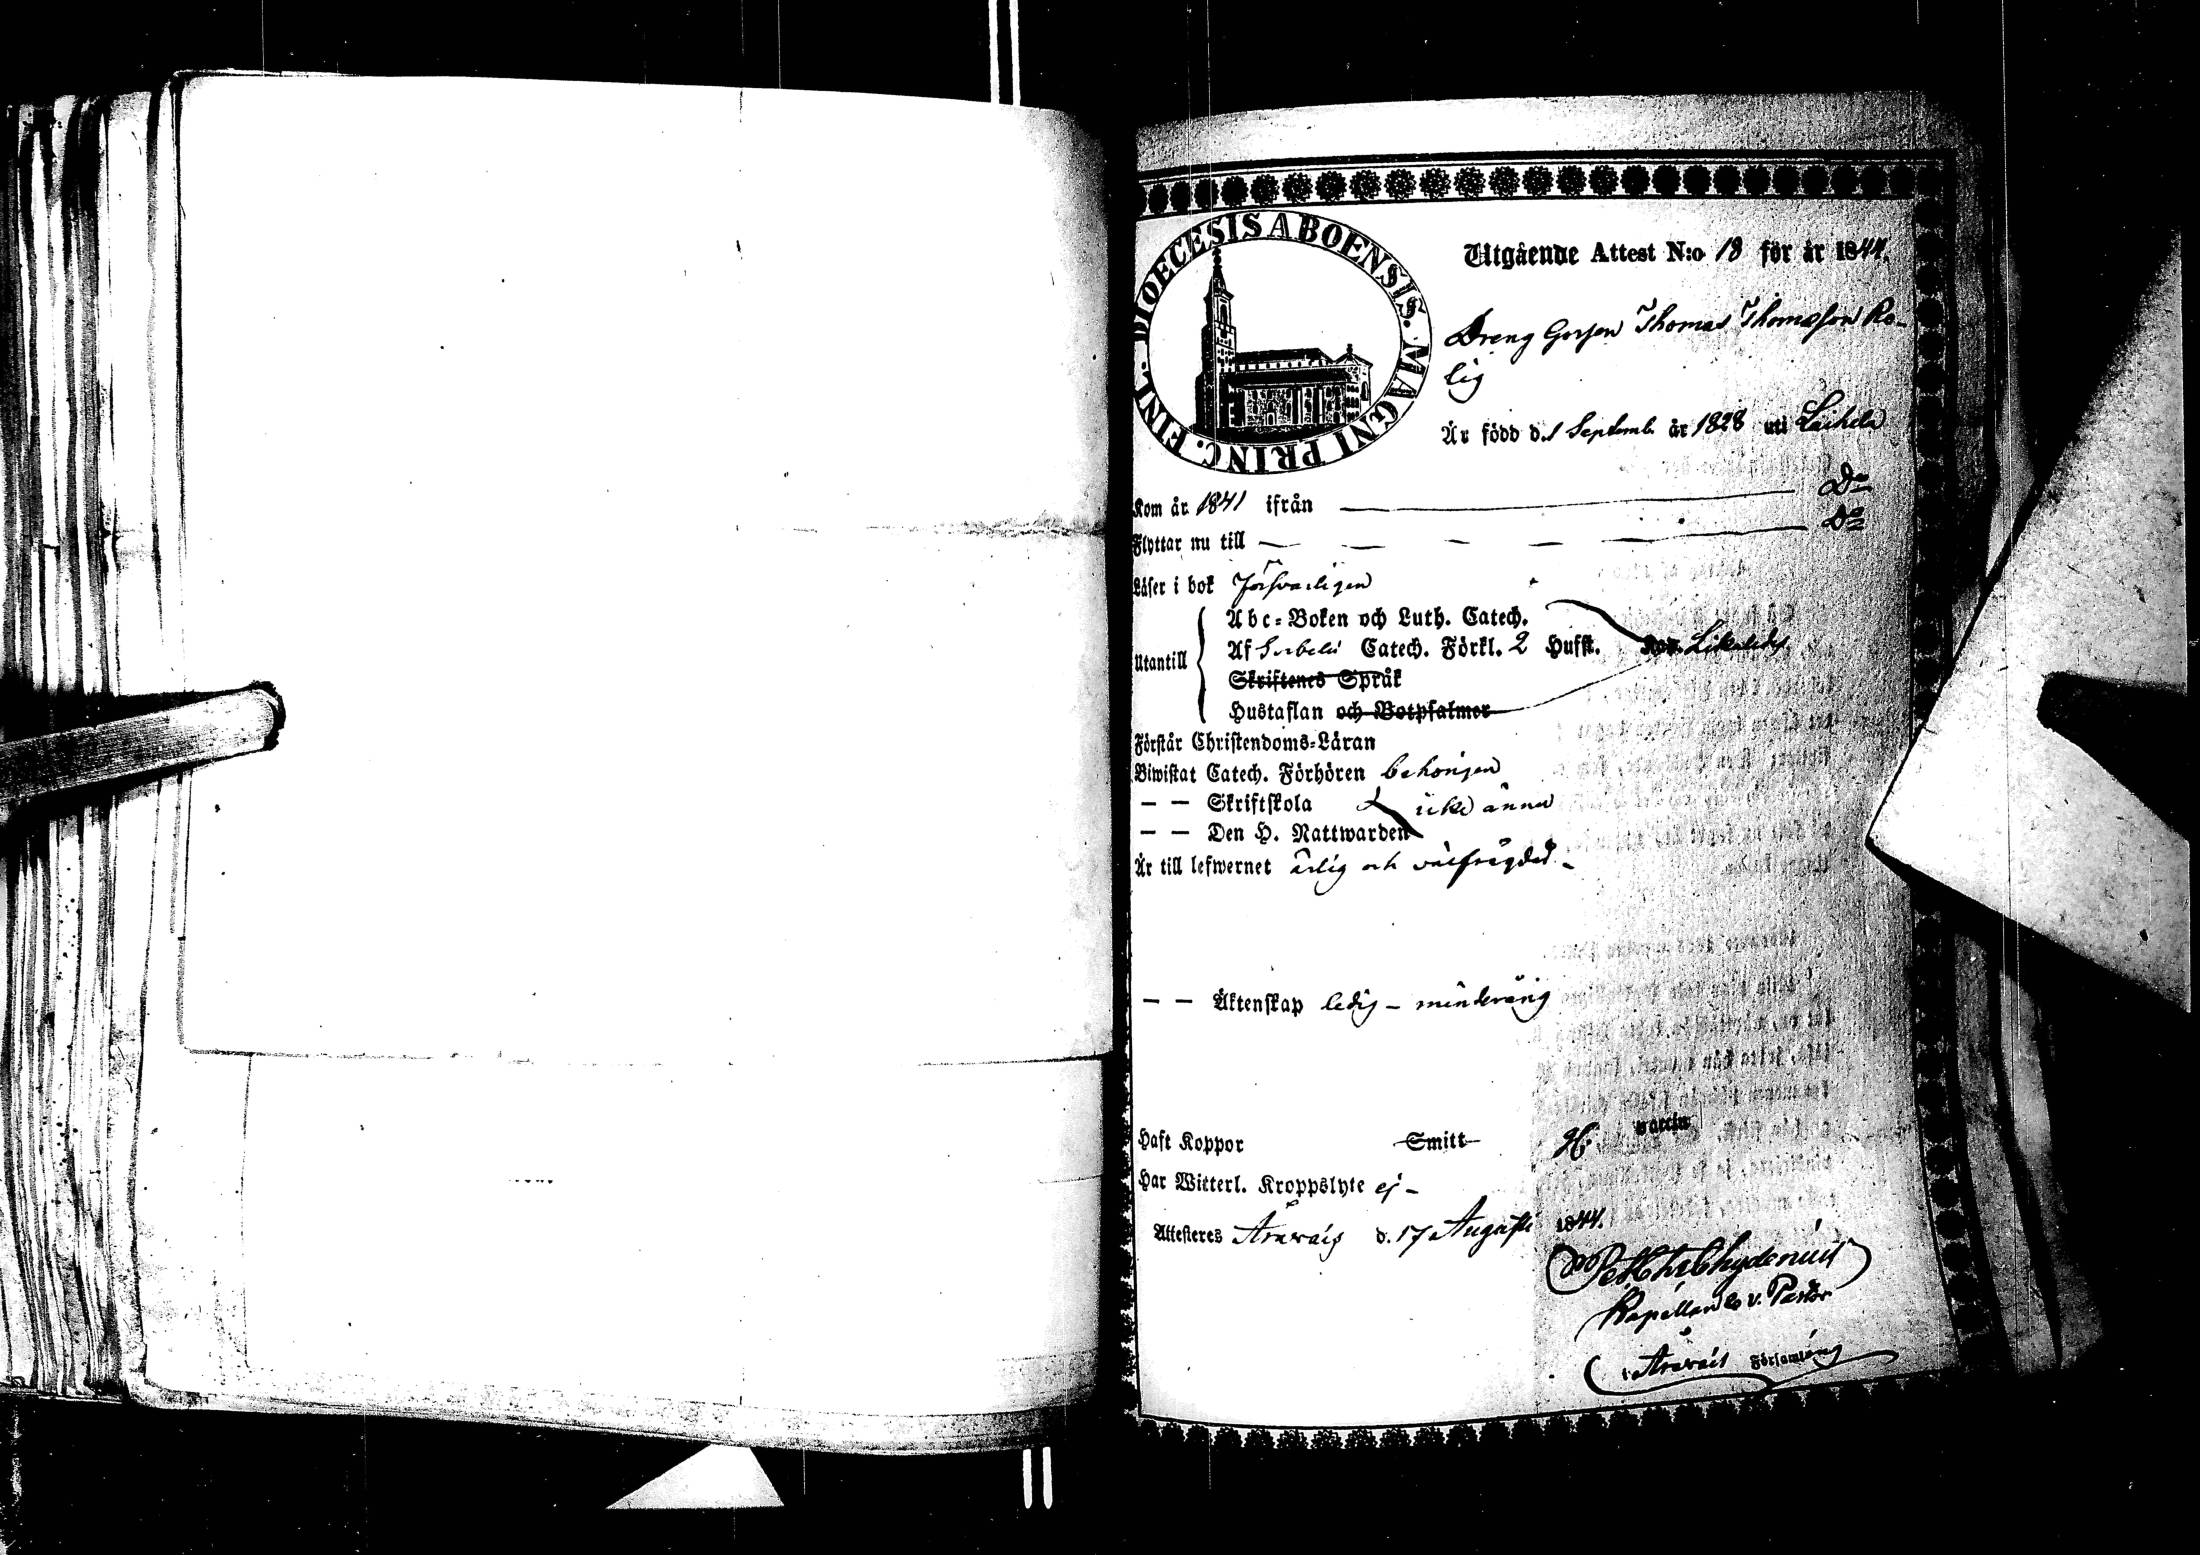 DIOECESIS ABOENSIS. MAGNI PRINC. FINL.
Utgående Attest N:o 18 för år 1844.
Dreng Gossen Thomas Thomasson Ro-
lig
Är född d. 1 Septemb. år 1828 uti Laihela
Kom år 1841 ifrån — Do
Flyttar nu till — — — — Do
Läser i bok försvarligen
Utantill
Abc-Boken och Luth. Catech.
Af Svebelii Catech. Förkl. 2 Hufst.
Likaledes
Skriftenes Språk
Hustaflan och Botpsalmer
Förstår Christendoms-Läran
Biwistat Catech. Förhören behörigen
— — Skriftskola icke ännu
— — Den H. Nattwarden
Är till lefwernet ärlig och välfrägdad —
— — Äktenskap ledig — minderårig
Haft Koppor Smitt
Har Witterl. Kroppslyte ej —
Attesteres d. 17 Augusti 1844.
Chydenius
Kapellan & v. Pastor
Församling